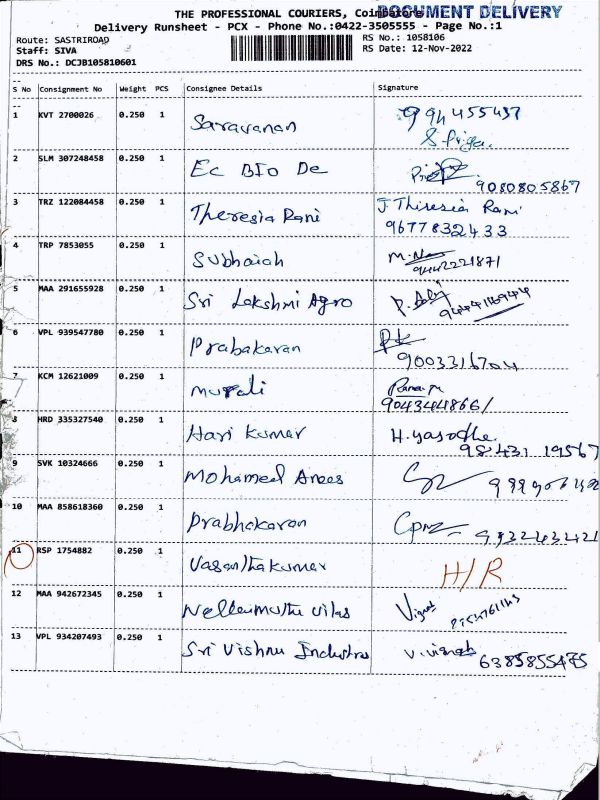 THE PROFESSIONAL COURIERS, Coimbatore
DOCUMENT DELIVERY
Delivery Runsheet - PCX - Phone No.:0422-3505555 - Page No.:1
Route: SASTRIROAD RS No.: 1058106
Staff: SIVA RS Date: 12-Nov-2022
DRS No.: DCJB105810601
S No Consignment No Weight PCS Consignee Details Signature
1 KVT 2700026 0.250 1 Saravanan
2 SLM 307248458 0.250 1 Ec BIO De 9080805867
3 TRZ 122084458 0.250 1 Theresia Rani J. Thiresia Rani
9677832433
4 TRP 7853055 0.250 1 Subhaiah
9442221871
5 MAA 291655928 0.250 1 Sri Lakshmi Agro
6 VPL 939547780 0.250 1 Prabakaran
9003316704
7 KCM 12621009 0.250 1 murali
9043448661
8 HRD 335327540 0.250 1 Hari kumar H. yasodha
98431 19567
9 SVK 10324666 0.250 1 Mohamed Anees
10 MAA 858618360 0.250 1 Prabhakaran
11 RSP 1754882 0.250 1 Vasanthakumar H/R
12 MAA 942672345 0.250 1 Nellaimuthu vilas Vignesh
13 VPL 934207493 0.250 1 Sri Vishnu Industries V. vignesh 6385855475